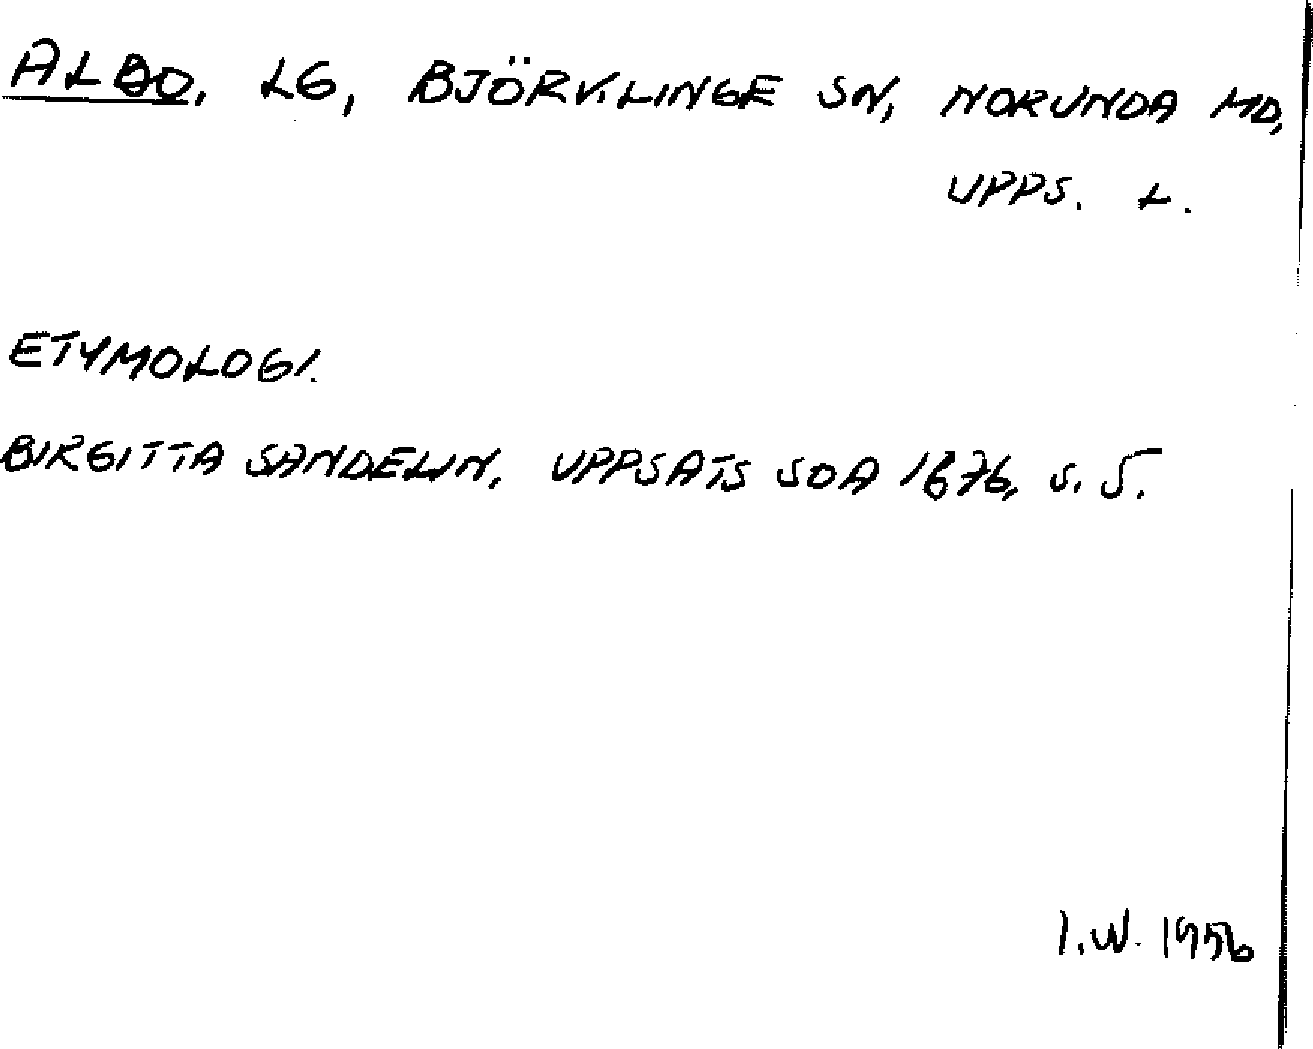 ALBO, LG, BJÖRKLINGE SN, NORUNDA HD,
UPPS. L.
ETYMOLOGI.
BIRGITTA SANDELIN, UPPSATS SOA 1676, S. 5.
I.W. 1956